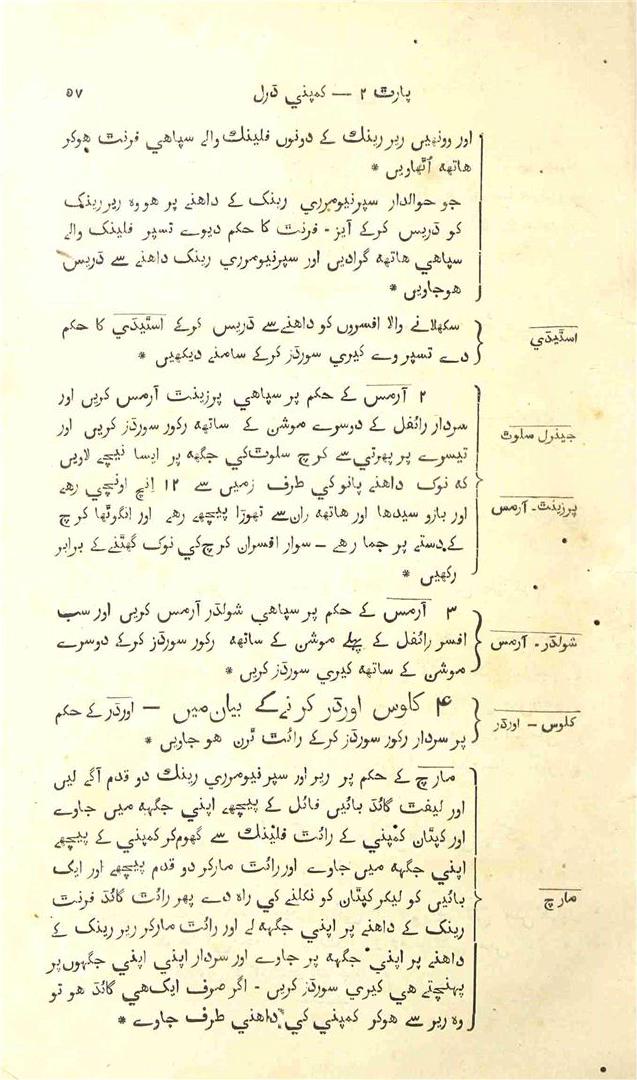 پارٹ ٢ — کمپني ڈرل ٥٧
اور وونهیں ریر رینک کے دونوں فلینک والے سپاهي فرنٹ هوکر
هاتھہ اُٹھاویں *
جو حوالدار سپرنیومرري رینک کے داهنے پر هو وہ ریر رینک
کو ڈریس کرکے آیز - فرنٹ کا حکم دیوے تسپر فلینک والے
سپاهي هاتھہ گرادیں اور سپرنیومرري رینک داهنے سے ڈریس
هوجاویں *
اسٹیڈي
سکھلانے والا افسروں کو داهنے سے ڈریس کرکے اسٹیڈي کا حکم
دے تسپر وے کیري سورڈز کرکے سامنے دیکھیں *
جینرل سلوٹ
پرزینٹ - آرمس
٢ آرمس کے حکم پر سپاهي پرزینٹ آرمس کریں اور
سردار رائفل کے دوسرے موشن کے ساتھہ رکور سورڈز کریں اور
تیسرے پر پھرتي سے کرچ سلوٹ کي جگہہ پر ایسا نیچے لاویں
کہ نوک داهنے پانو کي طرف زمیں سے ١٢ اِنچ اونچي رهے
اور بازو سیدها اور هاتھہ ران سے تھوڑا پیچھے رهے اور انگوٹھا کرچ
کے دستے پر جما رهے — سوار افسران کرچ کي نوک گھٹنے کے برابر
رکھیں *
شولڈر - آرمس
٣ آرمس کے حکم پر سپاهي شولڈر آرمس کریں اور سب
افسر رائفل کے پہلے موشن کے ساتھہ رکور سورڈز کرکے دوسرے
موشن کے ساتھہ کیري سورڈز کریں *
کلوس — اورڈر
۴ کلوس اورڈر کرنے کے بیان میں — اورڈر کے حکم
پر سردار رکور سورڈز کرکے رائٹ ٹرن هو جاویں *
مارچ
مارچ کے حکم پر ریر اور سپرنیومرري رینک دو قدم آگے لیں
اور لیفٹ گائڈ بائیں فائل کے پیچھے اپني جگہہ میں جاوے
اور کپتان کمپني کے رائٹ فلینک سے گھوم کر کمپني کے پیچھے
اپني جگہہ میں جاوے اور رائٹ مارکر دو قدم پیچھے اور ایک
بائیں کو لیکر کپتان کو نکلنے کي راہ دے پھر رائٹ گائڈ فرنٹ
رینک کے داهنے پر اپني جگہہ لے اور رائٹ مارکر ریر رینک کے
داهنے پر اپني جگہہ پر جاوے اور سردار اپني اپني جگہوں پر
پہنچتے هي کیري سورڈز کریں - اگر صرف ایک هي گائڈ هو تو
وہ ریر سے هوکر کمپني کي داهني طرف جاوے *